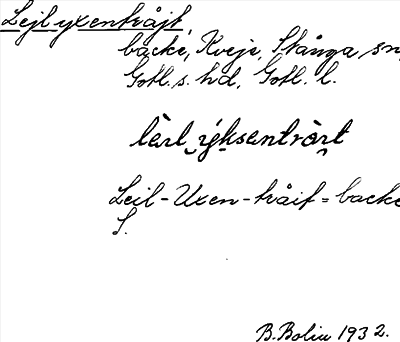 Lejl yxentråjt,
backe, Kveje, Stånga sn,
Gotl. s. hd, Gotl. l.
lèɩl ýksentròɩt
Leil-Uxen-tråit = backe
S.
B. Bolin 1932.